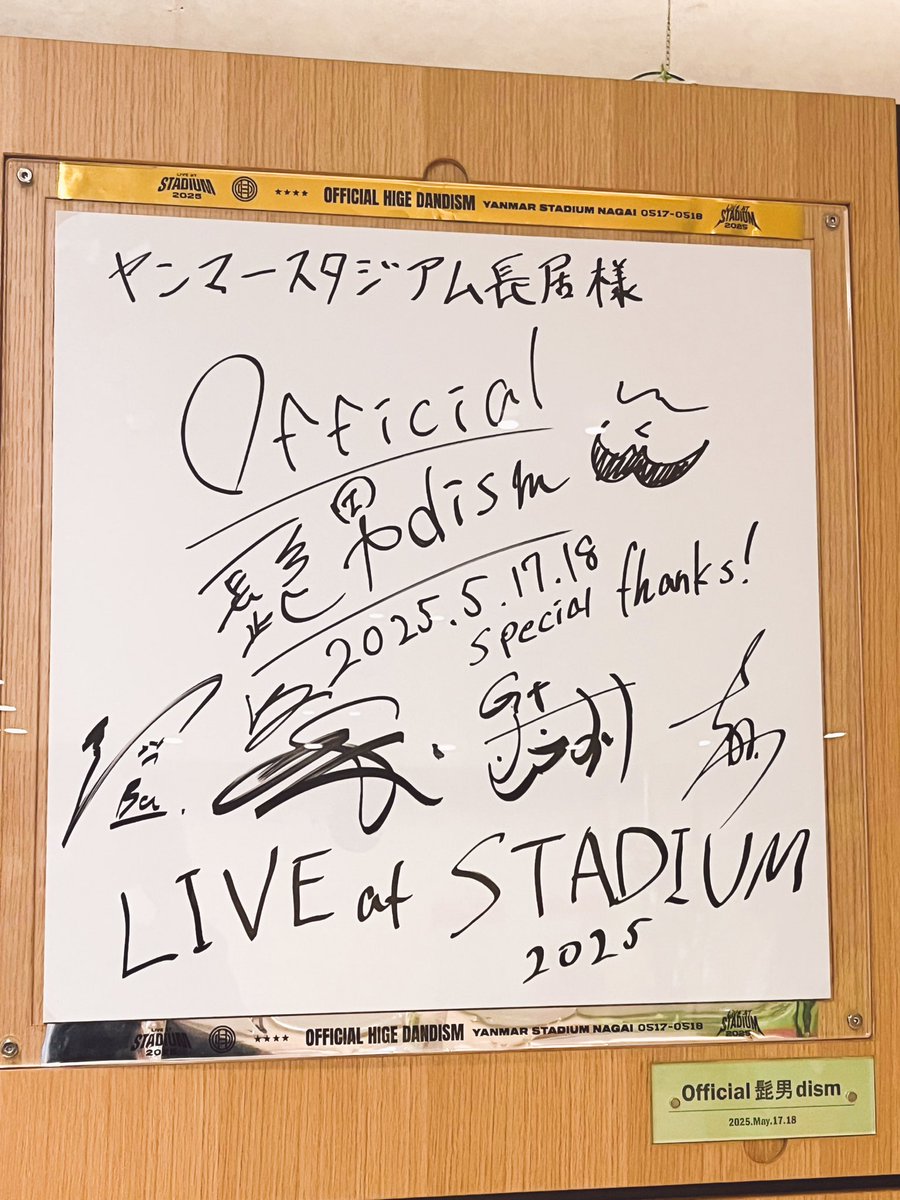 LIVE AT STADIUM 2025 ★★★★ OFFICIAL HIGE DANDISM YANMAR STADIUM NAGAI 0517-0518 LIVE AT STADIUM 2025
ヤンマースタジアム長居様
Official
髭男dism
2025.5.17.18
special thanks!
Ba.
Gt
LIVE at STADIUM
2025
LIVE AT STADIUM 2025 ★★★★ OFFICIAL HIGE DANDISM YANMAR STADIUM NAGAI 0517-0518 LIVE AT STADIUM 2025
Official髭男dism
2025.May.17.18